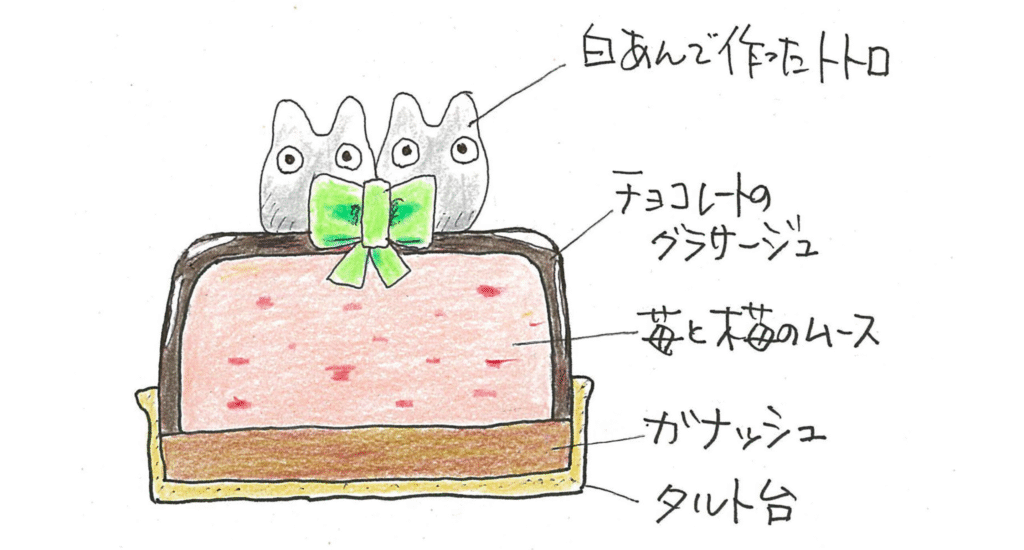 白あんで作ったトトロ
チョコレートの
グラサージュ
苺と木苺のムース
ガナッシュ
タルト台